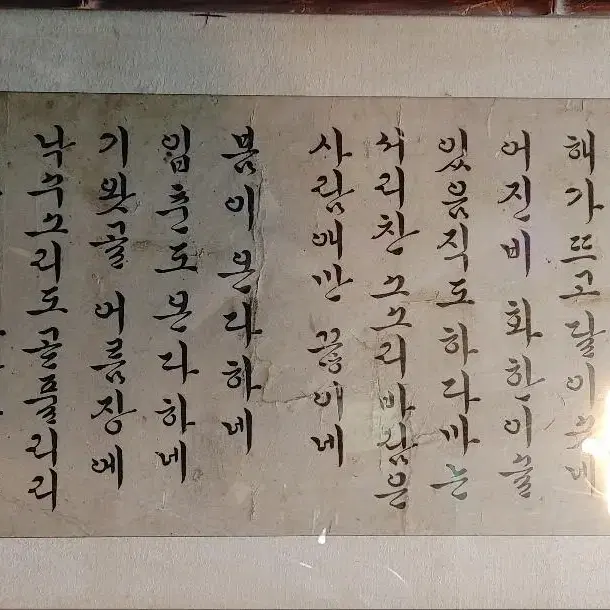 해가 뜨고 달이 뜨네
어진 비 화한 이슬
있음직도 하다 마는
서리 찬 고고리 바람은
사람에만 끓이네
봄이 온다 하네
입춘도 온다 하네
기왓골 어름장에
낙수 고리도 골 풀리리